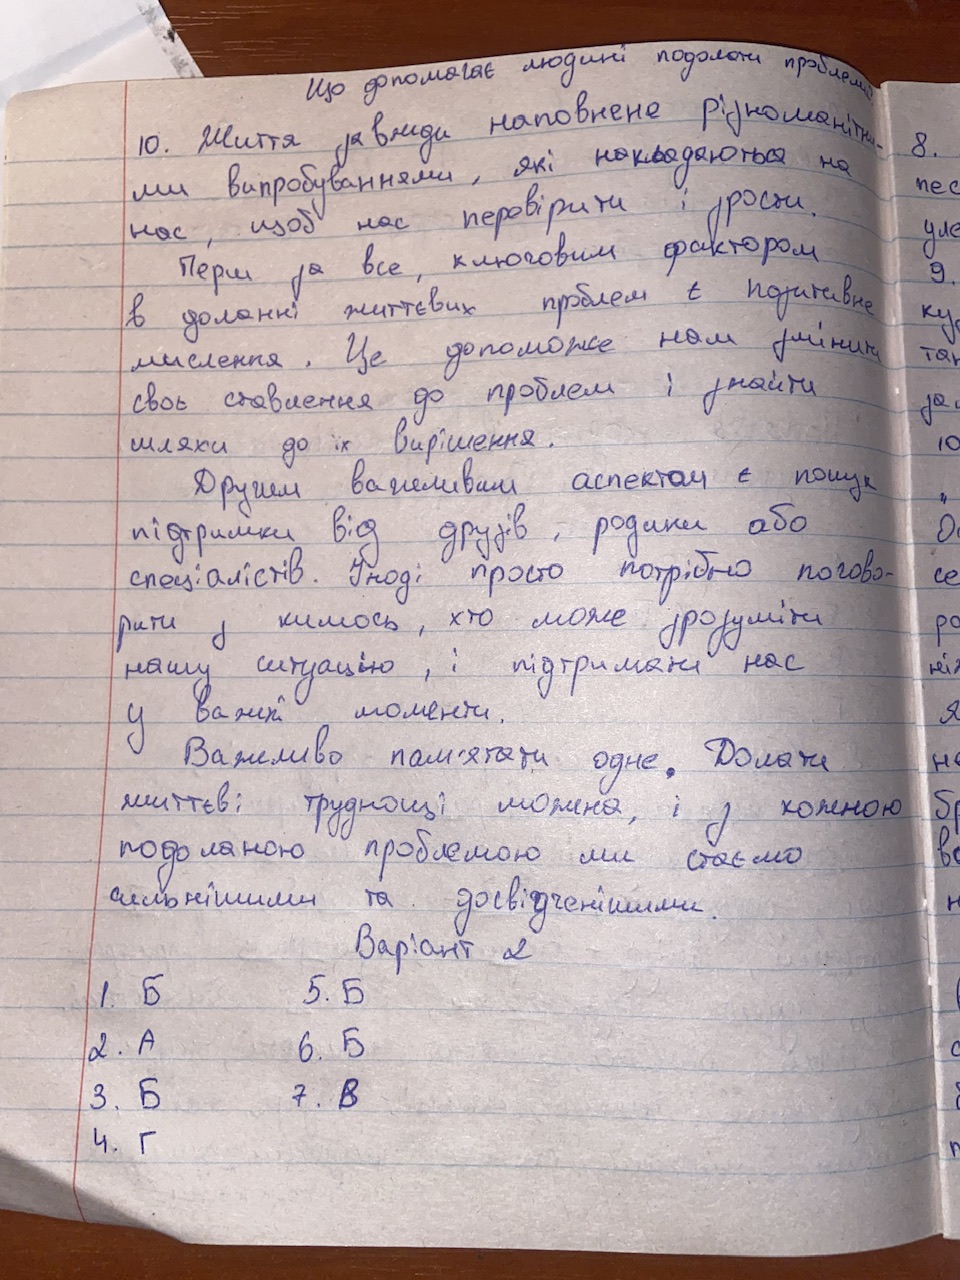 Що допомагає людині подолати проблеми
10. Життя завжди наповнене різноманітни-
ми випробуваннями, які накладаються на
нас, щоб нас перевірити і зрости.
Перш за все, ключовим фактором
в доланні життєвих проблем є позитивне
мислення. Це допоможе нам змінити
своє ставлення до проблем і знайти
шляхи до їх вирішення.
Другим важливим аспектом є пошук
підтримки від друзів, родини або
спеціалістів. Іноді просто потрібно погово-
рити з кимось, хто може зрозуміти
нашу ситуацію, і підтримати нас
у важкі моменти.
Важливо пам'ятати одне. Долати
життєві труднощі можна, і з кожною
подоланою проблемою ми стаємо
сильнішими та досвідченішими.
Варіант 2
1. Б 5. Б
2. А 6. Б
3. Б 7. В
4. Г
8.
9.
10